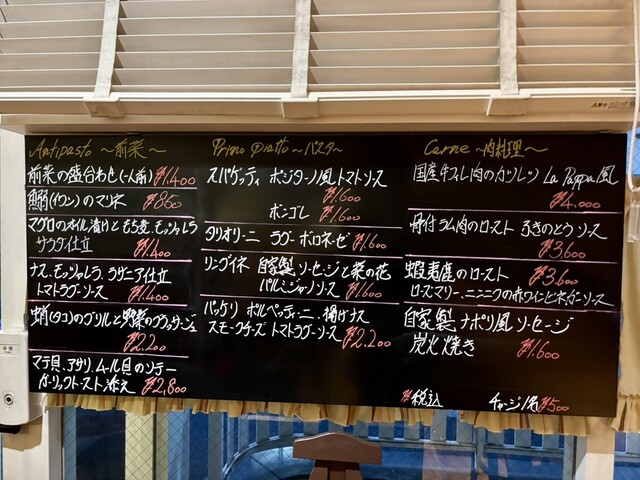 Antipasto ～前菜～
前菜の盛合わせ(一人前) ¥1,400
鰯(イワシ)のマリネ ¥850
マグロのオイル漬けともち麦、モッツァレラ
サラダ仕立 ¥1,400
ナス、モッツァレラ、ラザニア仕立
トマトラグーソース ¥1,400
蛸(タコ)のグリルと野菜の
¥2,200
マテ貝、アサリ、ムール貝のソテー
ガーリックトースト添え ¥2,800
Primo piatto ～パスタ～
スパゲッティ ポジターノ風トマトソース
¥1,600
ボンゴレ ¥1,600
タリオリーニ ラグーボロネーゼ ¥1,600
リングイネ 自家製ソーセージと菜の花
パルミジャーノソース ¥1,600
パッケリ ポルペッティーニ、揚げナス
スモークチーズトマトラグーソース ¥2,200
Carne ～肉料理～
国産牛フィレ肉のカツレツ La Pappa風
¥4,000
骨付ラム肉のロースト ふきのとうソース
¥3,600
蝦夷鹿のロースト ¥3,600
ローズマリー、ニンニクの赤ワインビネガーソース
自家製ナポリ風ソーセージ
炭火焼き ¥1,600
税込 チャージ1名¥500